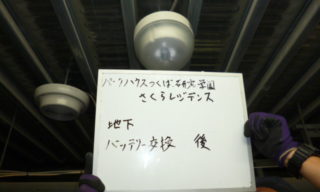 パークハウスつくば研究学園
さくらレジデンス
地下
バッテリー交換 後